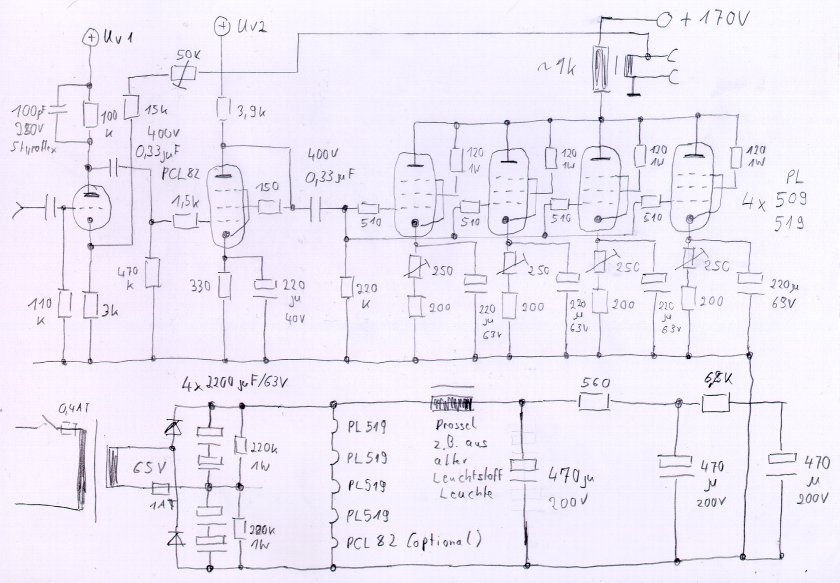 Uv1
Uv2
+ 170V
50k
~1k
100pF
280V
Styroflex
100
k
15k
400V
0,33µF
3,9k
PCL82
400V
0,33µF
120
1W
120
1W
120
1W
120
1W
1,5k
150
510
510
510
510
PL
4x 509
519
110
k
3k
470
k
330
220
µ
40V
220
k
250
200
220
µ
63V
250
200
220
µ
63V
250
200
220
µ
63V
250
200
220µ
63V
4x 2200µF/63V
0,4AT
65V
1AT
220k
1W
220k
1W
PL519
PL519
PL519
PL519
PCL82 (optional)
Drossel
z.B. aus
alter
Leuchtstoff
Leuchte
470µ
200V
560
470
µ
200V
6,8K
470
µ
200V